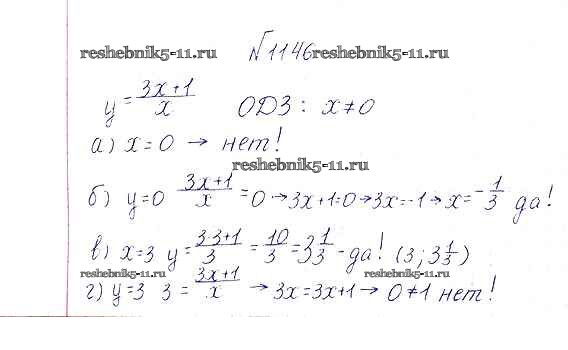 reshebnik5-11.ru №1146 reshebnik5-11.ru
y = (3x+1)/x ОДЗ: x≠0
а) x=0 → нет!
reshebnik5-11.ru
б) y=0 (3x+1)/x = 0 → 3x+1=0 → 3x=-1 → x=-1/3 да!
в) x=3 y = (3·3+1)/3 = 10/3 = 3 1/3 - да! (3; 3 1/3)
reshebnik5-11.ru reshebnik5-11.ru
г) y=3 3 = (3x+1)/x → 3x=3x+1 → 0≠1 нет!